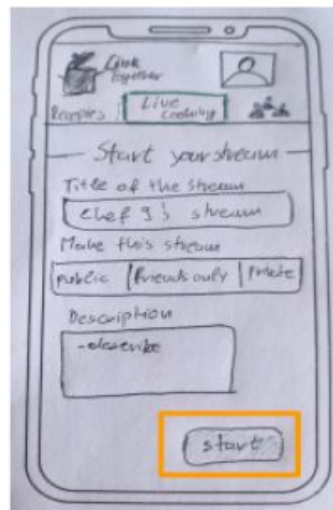 together
Live
Cooking
Start your stream
Title of the stream
chef J's stream
Make this stream
public friends only Private
Description
-describe
start